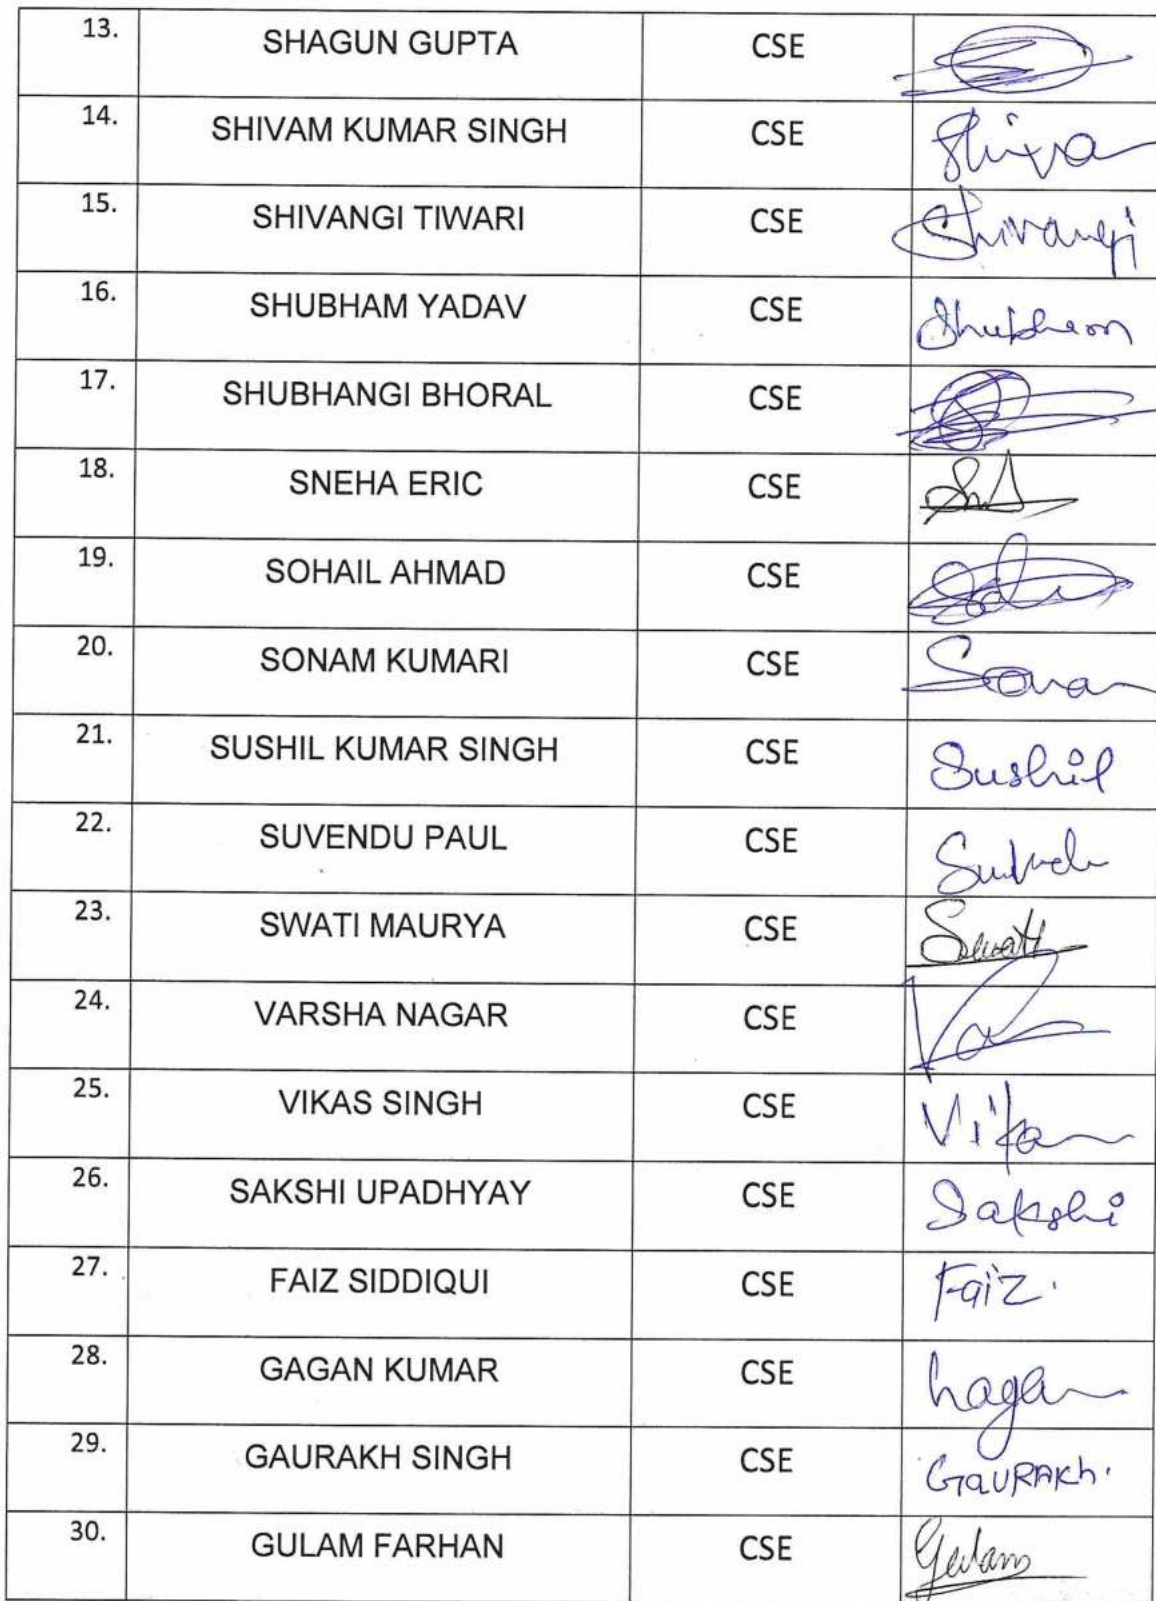 13. SHAGUN GUPTA CSE
14. SHIVAM KUMAR SINGH CSE Shiva
15. SHIVANGI TIWARI CSE Shivangi
16. SHUBHAM YADAV CSE Shubham
17. SHUBHANGI BHORAL CSE
18. SNEHA ERIC CSE
19. SOHAIL AHMAD CSE
20. SONAM KUMARI CSE Sona
21. SUSHIL KUMAR SINGH CSE Sushil
22. SUVENDU PAUL CSE
23. SWATI MAURYA CSE Swati
24. VARSHA NAGAR CSE
25. VIKAS SINGH CSE Vika
26. SAKSHI UPADHYAY CSE Sakshi
27. FAIZ SIDDIQUI CSE Faiz.
28. GAGAN KUMAR CSE
29. GAURAKH SINGH CSE GAURAKh.
30. GULAM FARHAN CSE Gulam